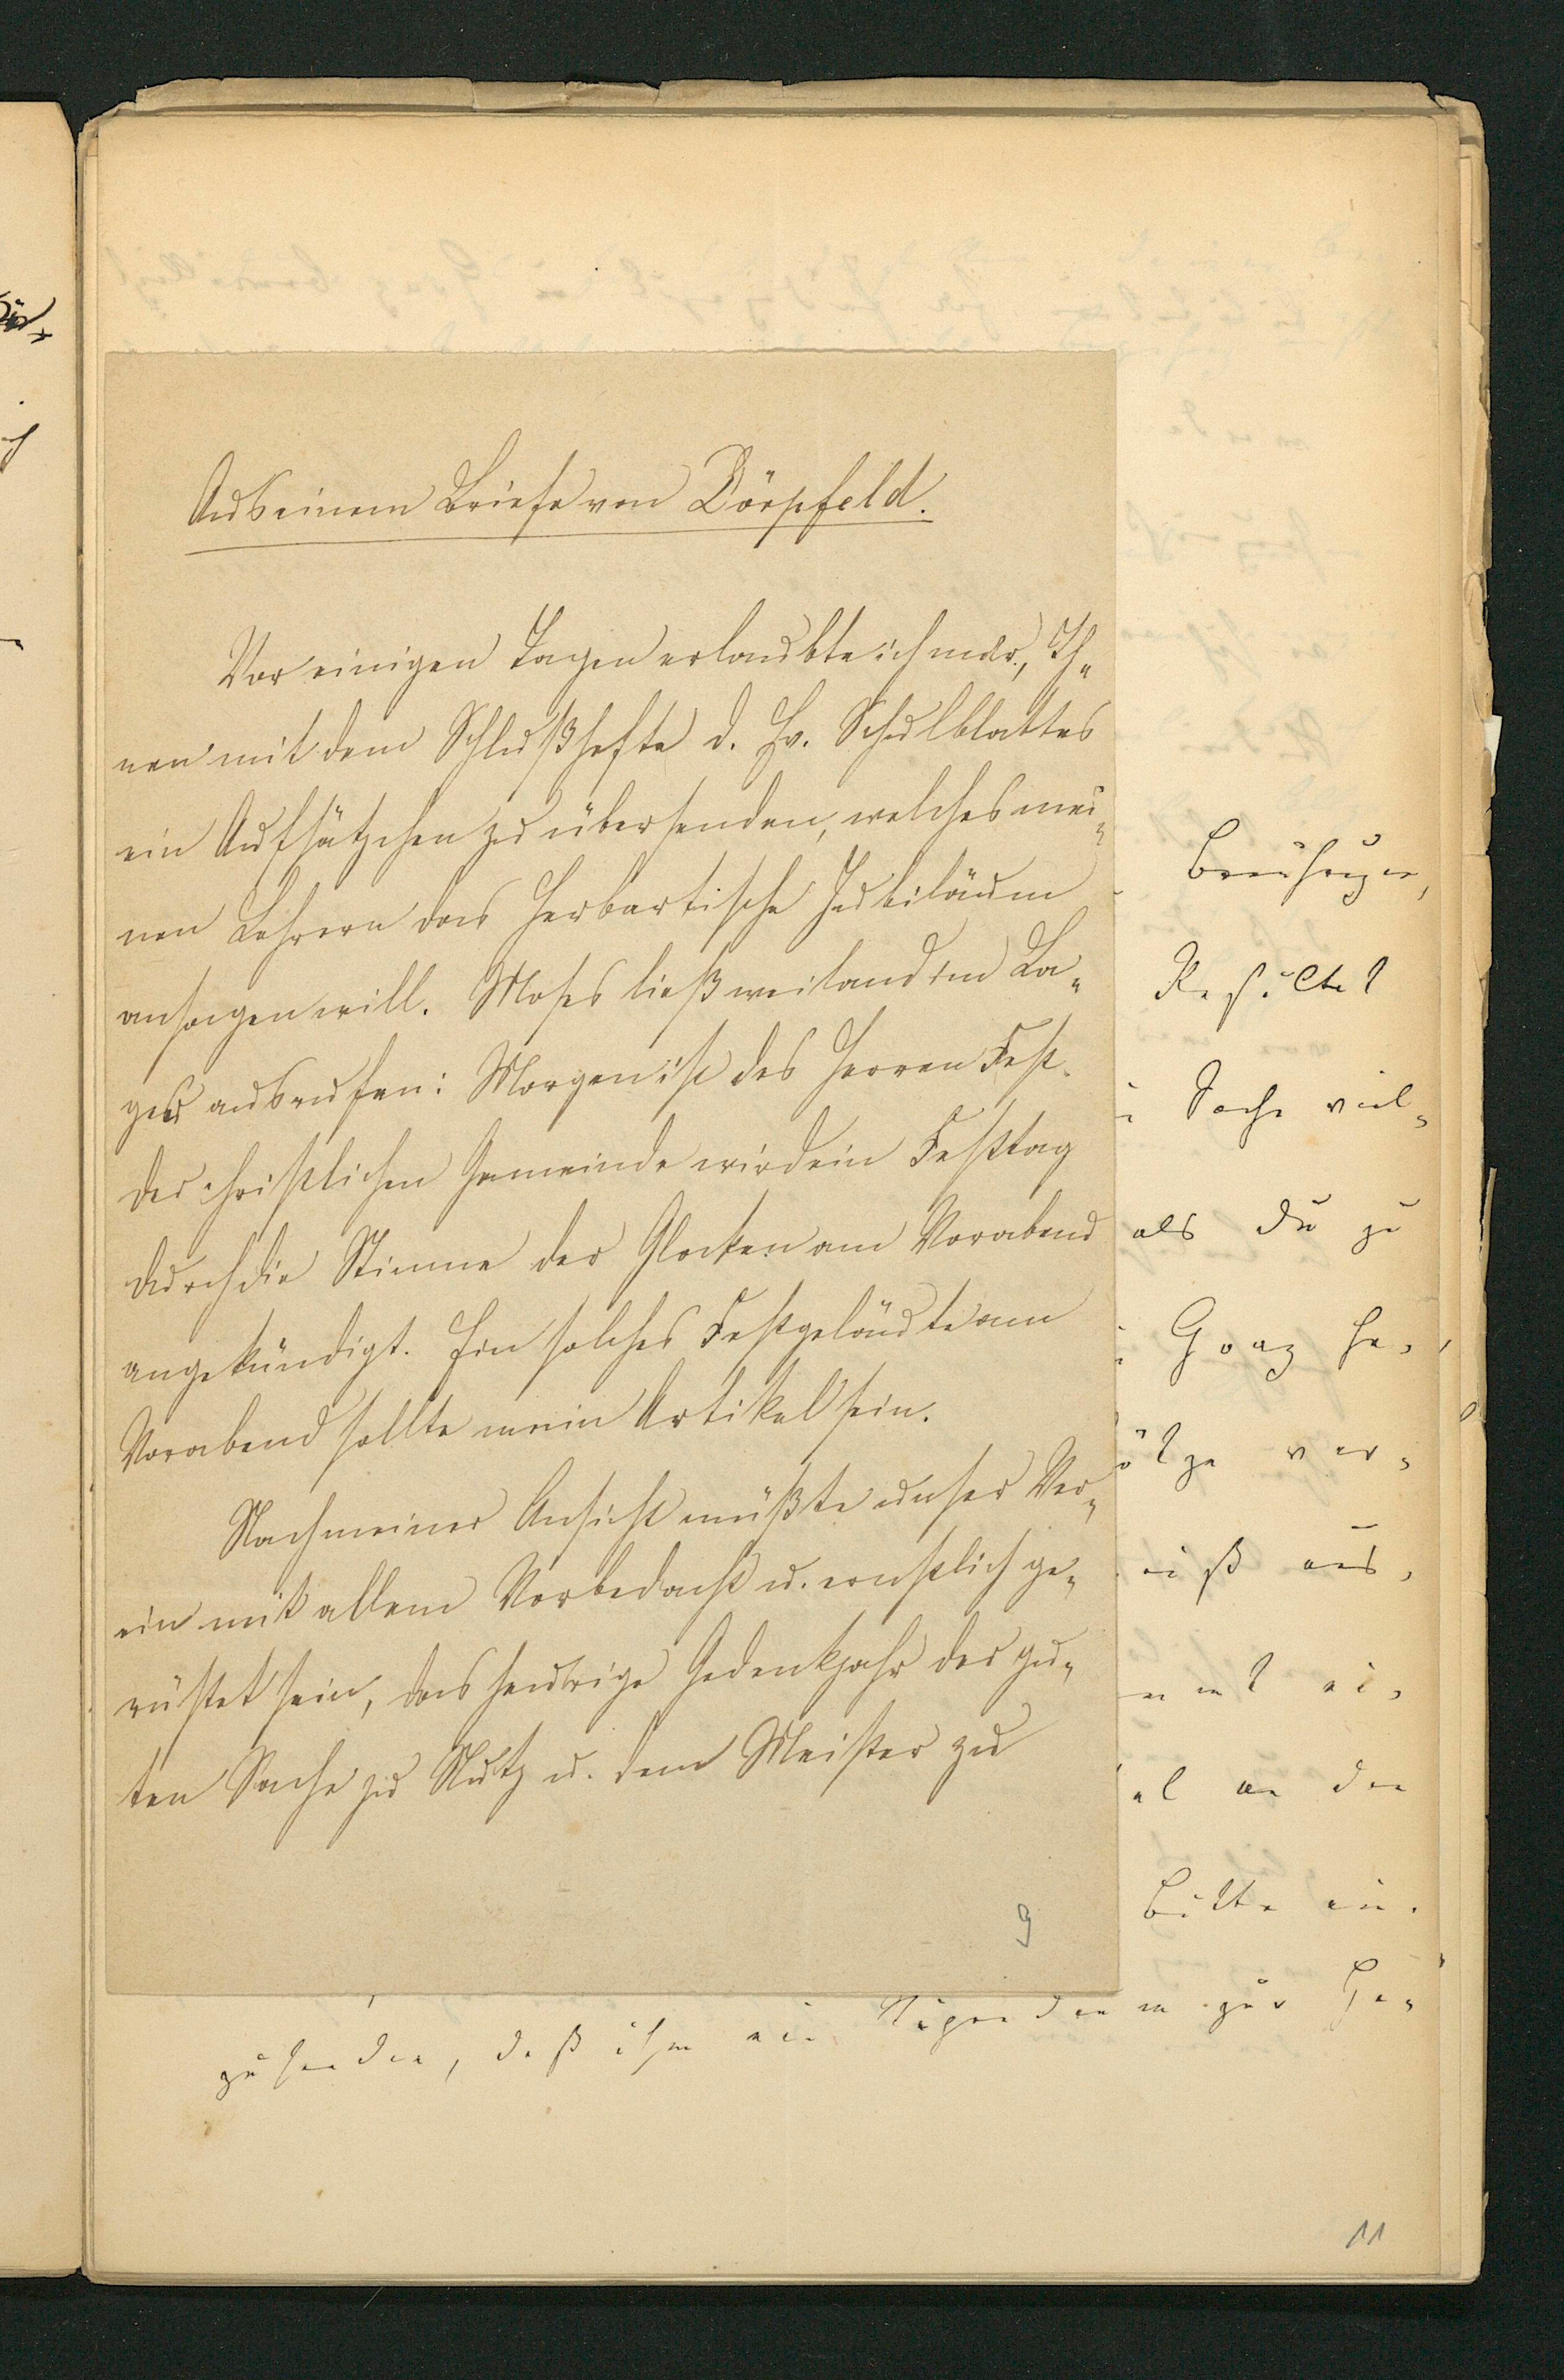 Aus einem Briefe von Dörpfeld.
Vor einigen Tagen erlaubte ich mir, Ih-
nen mit dem Schlußhefte d. Ev. Schulblattes
ein Aufsätzchen zu übersenden, welches mei-
nen Lehrern das Herbartische Jubiläum
ansagen will. Moses ließ weiland im La-
ger ausrufen: Morgen ist des Herren Fest.
Der christlichen Gemeinde wird ein Festtag
durch die Stimme der Glocken am Vorabend
angekündigt. Ein solches Festgeläute am
Vorabend sollte mein Artikel sein.
Nach meiner Ansicht müßte unser Ver-
ein mit allem Vorbedacht u. ernstlich ge-
rüstet sein, das heurige Gedenkjahr der gu-
ten Sache zu Nutz u. dem Meister zu
9
Resultat
Sache viel-
als du zu
Ganz he-
ver-
aus-
al an den
Bitte ein-
zusenden, daß ihm ein zur Ge-
11